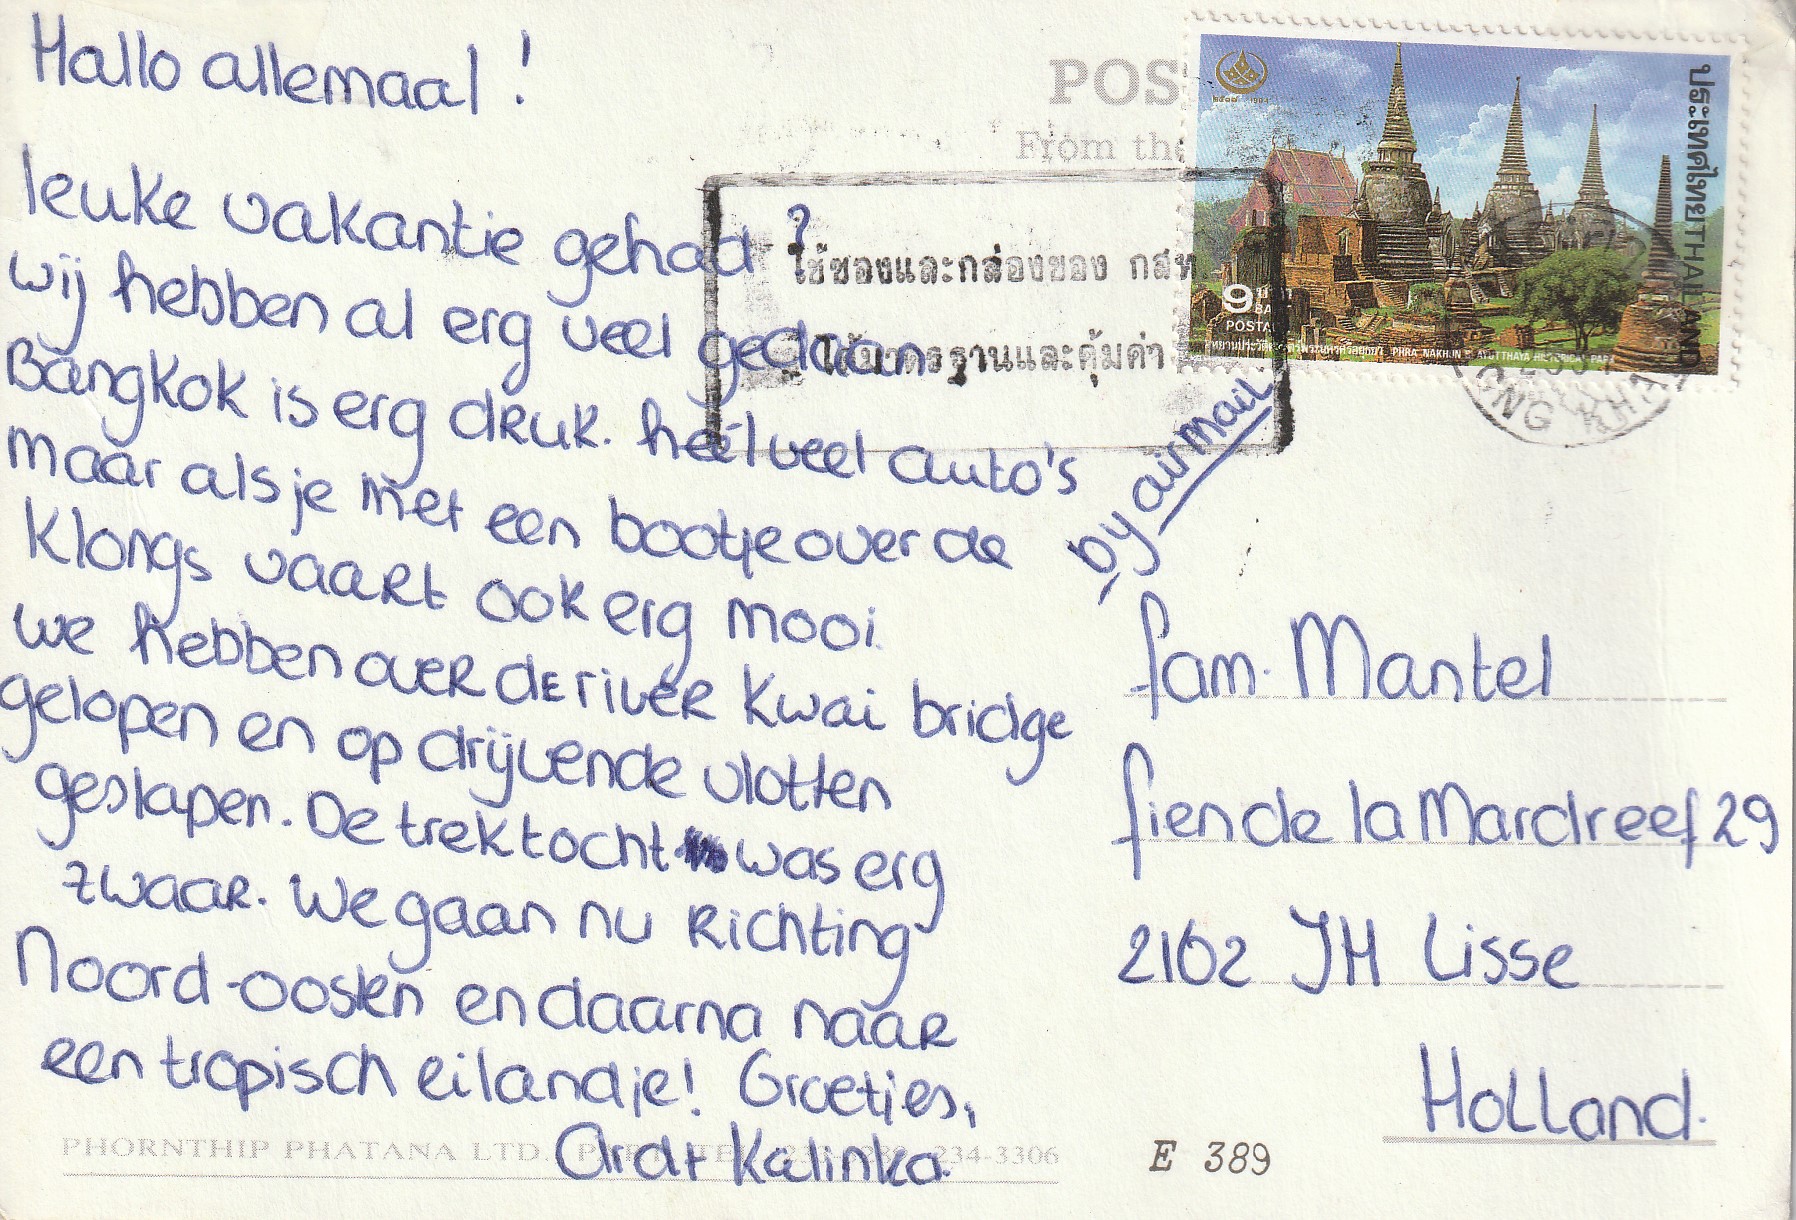 Hallo allemaal!
leuke vakantie gehad?
wij hebben al erg veel gedaan
Bangkok is erg druk. heel veel auto's
maar als je met een bootje over de
Klongs vaart ook erg mooi.
we hebben over de river Kwai bridge
gelopen en op drijvende vlotten
geslapen. De trektocht was erg
zwaar. We gaan nu Richting
Noord-oosten en daarna naar
een tropisch eilandje! Groetjes,
Ard + Kalinka.
PHORNTHIP PHATANA LTD. 234-3306
E 389
POS
From the
ใช้ซองและกล่องของ กสท
ได้มาตรฐานและคุ้มค่า
ประเทศไทย THAILAND
๒๕๓๗ 1994
9 บาท
BA
POSTA
PHRA NAKHON AYUTTHAYA HISTORICAL PARK
by airmail
fam. Mantel
fien de la Mardreef 29
2162 JH Lisse
Holland.